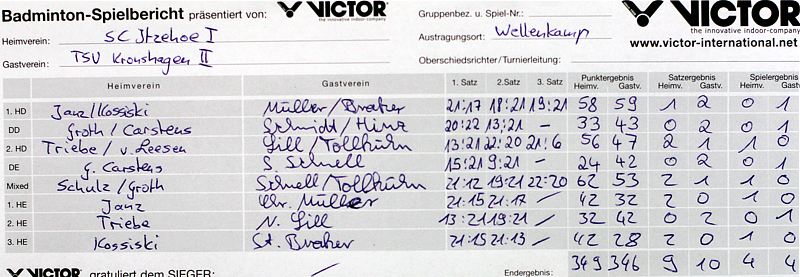 Badminton-Spielbericht präsentiert von: VICTOR the innovative indoor-company
Gruppenbez. u. Spiel-Nr.: VICTOR the innovative indoor-company
Heimverein: SC Itzehoe I Austragungsort: Wellenkamp www.victor-international.net
Gastverein: TSV Kronshagen II Oberschiedsrichter/Turnierleitung:
Heimverein Gastverein 1. Satz 2.Satz 3. Satz Punktergebnis Heimv. Gastv. Satzergebnis Heimv. Gastv. Spielergebnis Heimv. Gastv.
1. HD Janz/Kossiski Müller/Braker 21:17 18:21 19:21 58 59 1 2 0 1
DD Groth/Carstens Schmidt/Hinz 20:22 13:21 – 33 43 0 2 0 1
2. HD Triebe/v.Leesen Gill/Tollkühn 13:21 22:20 21:6 56 47 2 1 1 0
DE G. Carstens S. Schnell 15:21 9:21 – 24 42 0 2 0 1
Mixed Schulz/Groth Schnell/Tollkühn 21:12 19:21 22:20 62 53 2 1 1 0
1. HE Janz Chr. Müller 21:15 21:17 – 42 32 2 0 1 0
2. HE Triebe N. Gill 13:21 19:21 – 32 42 0 2 0 1
3. HE Kossiski St. Braker 21:15 21:13 – 42 28 2 0 1 0
VICTOR gratuliert dem SIEGER: – Endergebnis: 349 346 9 10 4 4